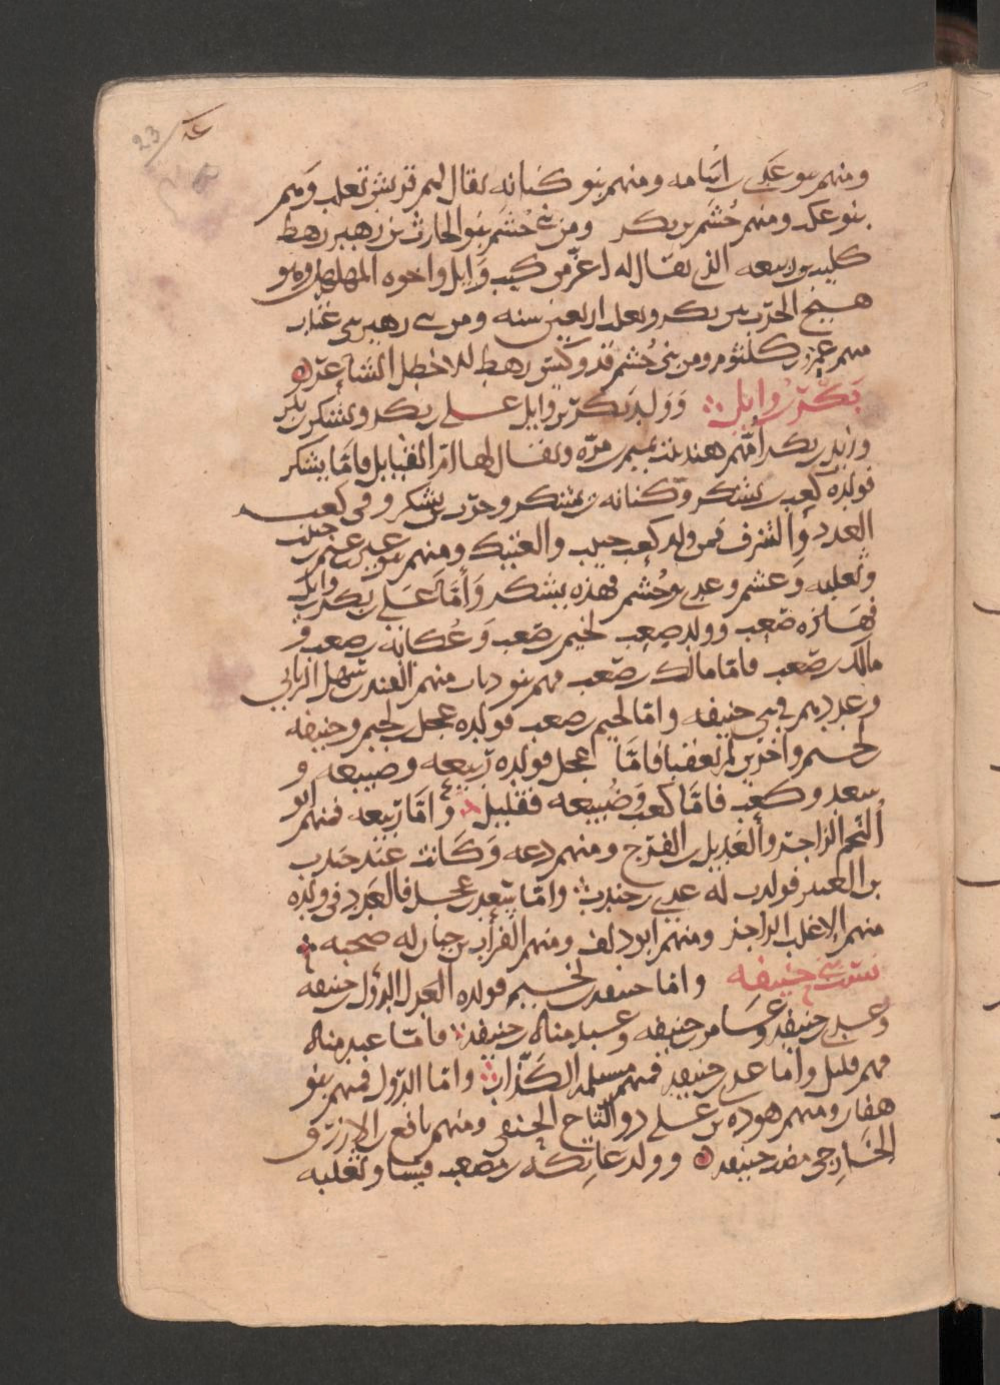 23
ومنهم بنو عكب بن اسامه ومنهم بنو كنانه يقال لهم قريش تغلب ومنهم
بنو عكب ومنهم جُشَم بن بكر ومن بني جُشَم بنو الحارث بن زهير رهط
كليب بن ربيعه الذي يقال له اعزّ من كليب وايل واخوه المهلهل وهو
هيج الحرب بين بكر وتغلب اربعين سنه ومن بني زهير بني عتاب
منهم عمرو بن كلثوم ومن بني جُشم فدوكس رهط الاخطل الشاعر
بَكر بن وايل وَوَلد بَكر بن وايل علي بن بكر ويشكر بن بكر
وبدن بن بكر امّهم هند بنت تميم بن مرّه ويقال لها امّ القبايل فامّا يشكر
فولده كعب بن يشكر وكنانه بن يشكر وحرب بن يشكر وفي كعب
العدد والشرف فمن ولد كعب حبيب والعتيك ومنهم بنو غبر بن غنم بن حبيب
وثعلبه وعشم وعدي وجُشم فهذه يشكر وَأمّا عَلي بن بكر بن وايل
فهَذه صَعب وولد صعب لجيم بن صَعب وَعُكابة بن صعب و
مالك بن صَعب فامّا مالك بن صَعب فهم بنو زمان منهم الفند شهل الزماني
وعددهم في بني حنيفه وامّا لجيم بن صعب فولده عجل بن لجيم وحنيفه
بن لجيم واخرين لم يعقبا فامّا عجل فولده رَبيعه وضبيعه و
سعد وكعب فامّا كعب وَضُبيعه فقليل وامّا رَبيعه فمنهم ابو
النجم الراجز والعديل بن الفرخ ومنهم دعه وكانت عند جندب
بن العنبر فولدت له عدي بن جندب وامّا سَعد بن عجل فالعَدد في ولده
منهم الاغلب الراجز ومنهم ابو دلف ومنهم الفرات بن حيان له صحبه
نسب بني حنيفه وامّا حنيفه بن لجيم فولده العدل الدؤل بن حنيفه
وعدي بن حنيفه وعَامر بن حنيفه وعبد مناه بن حنيفه فامّا عبد مناه
فهم قليل وامّا عدي بن حنيفه فمنهم مسيلمه الكذّاب وامّا الدؤل فمنهم بنو
هفان ومنهم هوذه بن علي ذو التاج الحنفي ومنهم نافع بن الازرق
الخَارجي مضت حنيفه وولد عكابه بن صعب قيسا وثعلبه